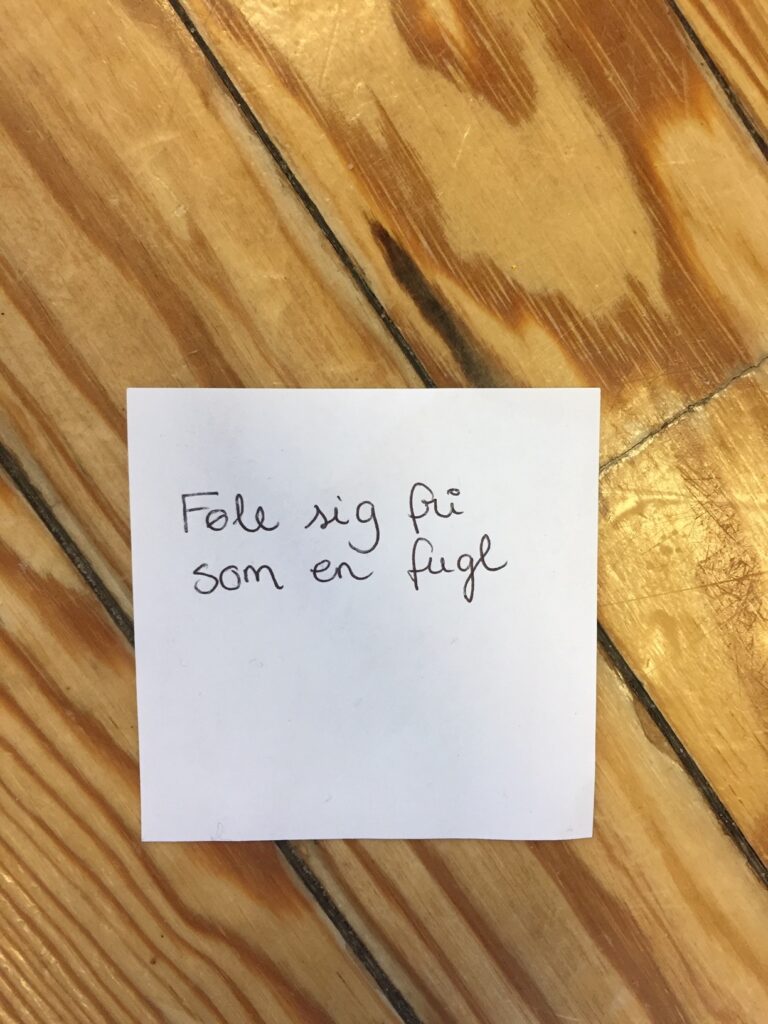 Føle sig fri
som en fugl